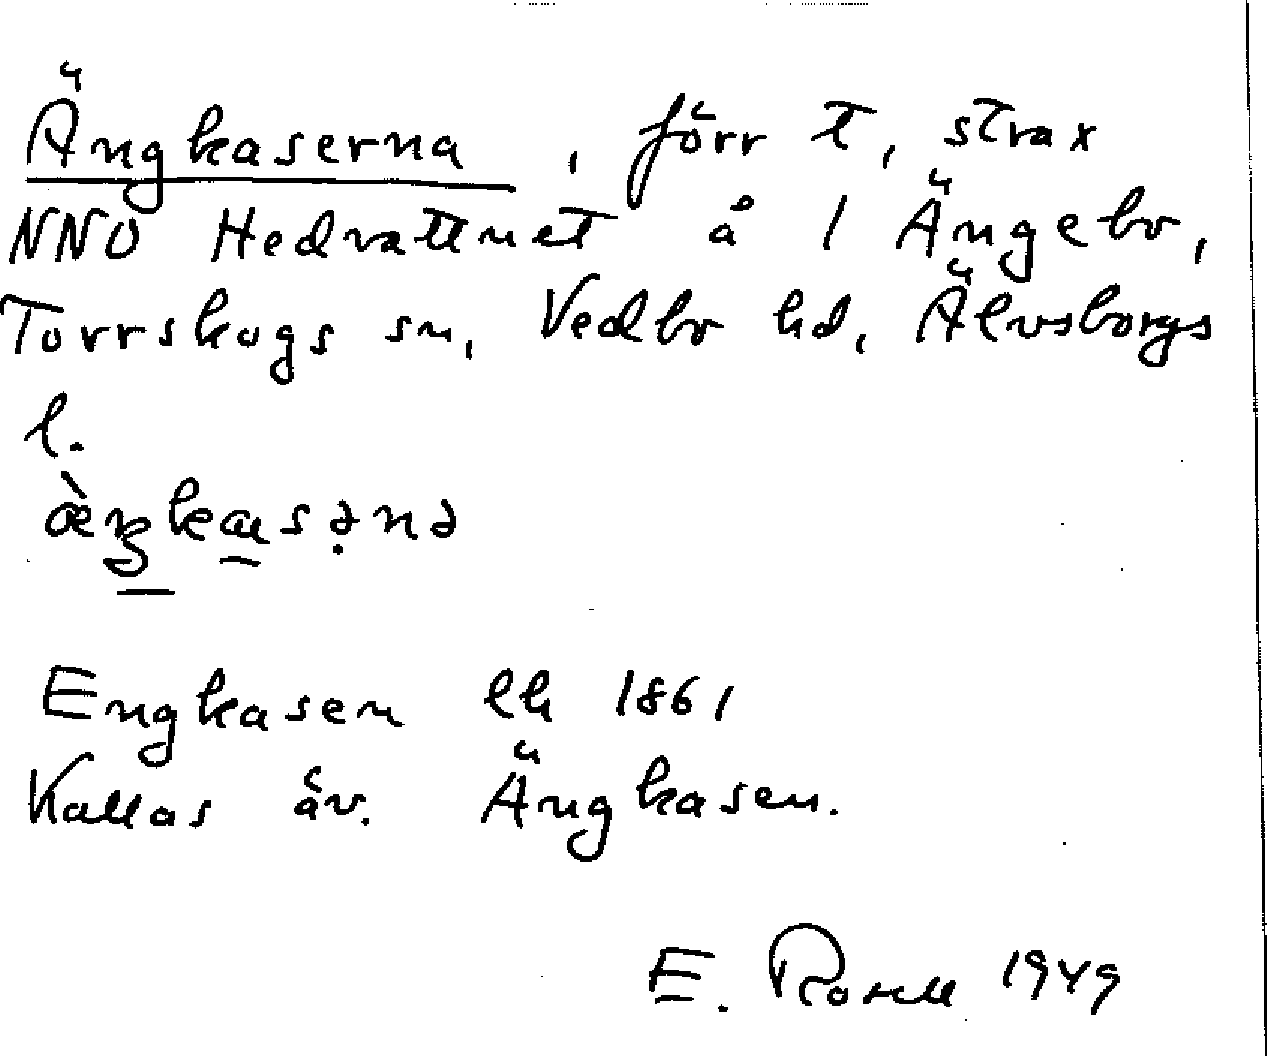 Ängkaserna, förr t, strax
NNO Hedvattnet å 1 Ängebo,
Torrskogs sn, Vedbo hd, Älvsborgs
l.
Engkasen lh 1861
Kallas äv. Ängkasen.
E. Rosell 1949